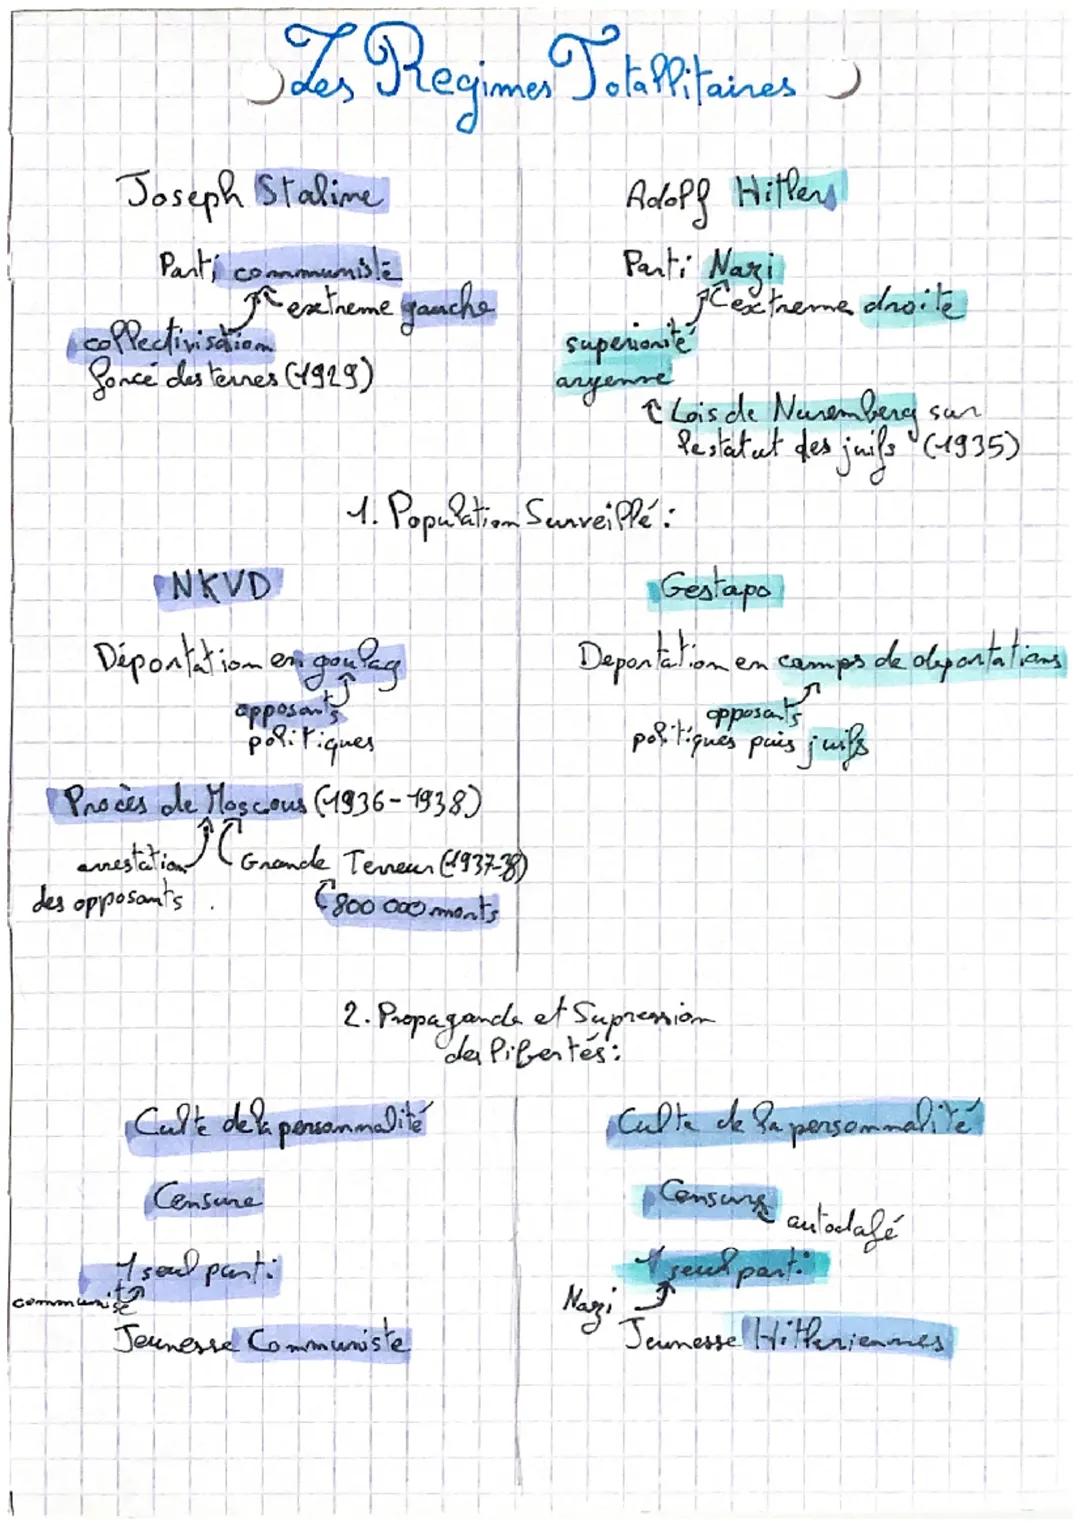 Les Regimes Totallitaires
Joseph Staline
Parti communiste
extreme gauche
collectivisation
forcé des terres (1929)
Adolf Hitler
Parti Nazi
extreme droite
superiorité
aryenne
Lois de Nuremberg sur
le statut des juifs (1935)
1. Population Surveillé :
NKVD
Déportation en goulag
opposants
politiques
Procès de Moscous (1936-1938)
arrestation
des opposants.
Grande Terreur (1937-38)
800 000 morts
Gestapo
Deportation en camps de deportations
opposants
politiques puis juifs
2. Propagande et Supression
des libertés :
Culte de la personnalité
Censure
1 seul parti
communiste
Jeunesse Communiste
Culte de la personnalité
Censure
autodafé
1 seul parti
Nazi
Jeunesse Hitleriennes